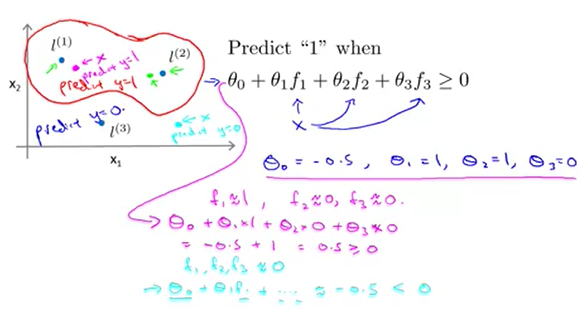 l⁽¹⁾
l⁽²⁾
← x
predict y=1
predict y=1
x₂
predict y=0.
l⁽³⁾
← x
predict y=0
x₁
Predict “1” when
→ θ₀ + θ₁f₁ + θ₂f₂ + θ₃f₃ ≥ 0
x
θ₀ = -0.5 , θ₁ = 1, θ₂ = 1, θ₃ = 0
f₁ ≈ 1 , f₂ ≈ 0, f₃ ≈ 0.
→ θ₀ + θ₁×1 + θ₂×0 + θ₃×0
= -0.5 + 1 = 0.5 ≥ 0
f₁, f₂, f₃ ≈ 0
→ θ₀ + θ₁f₁ + ... ≈ -0.5 < 0